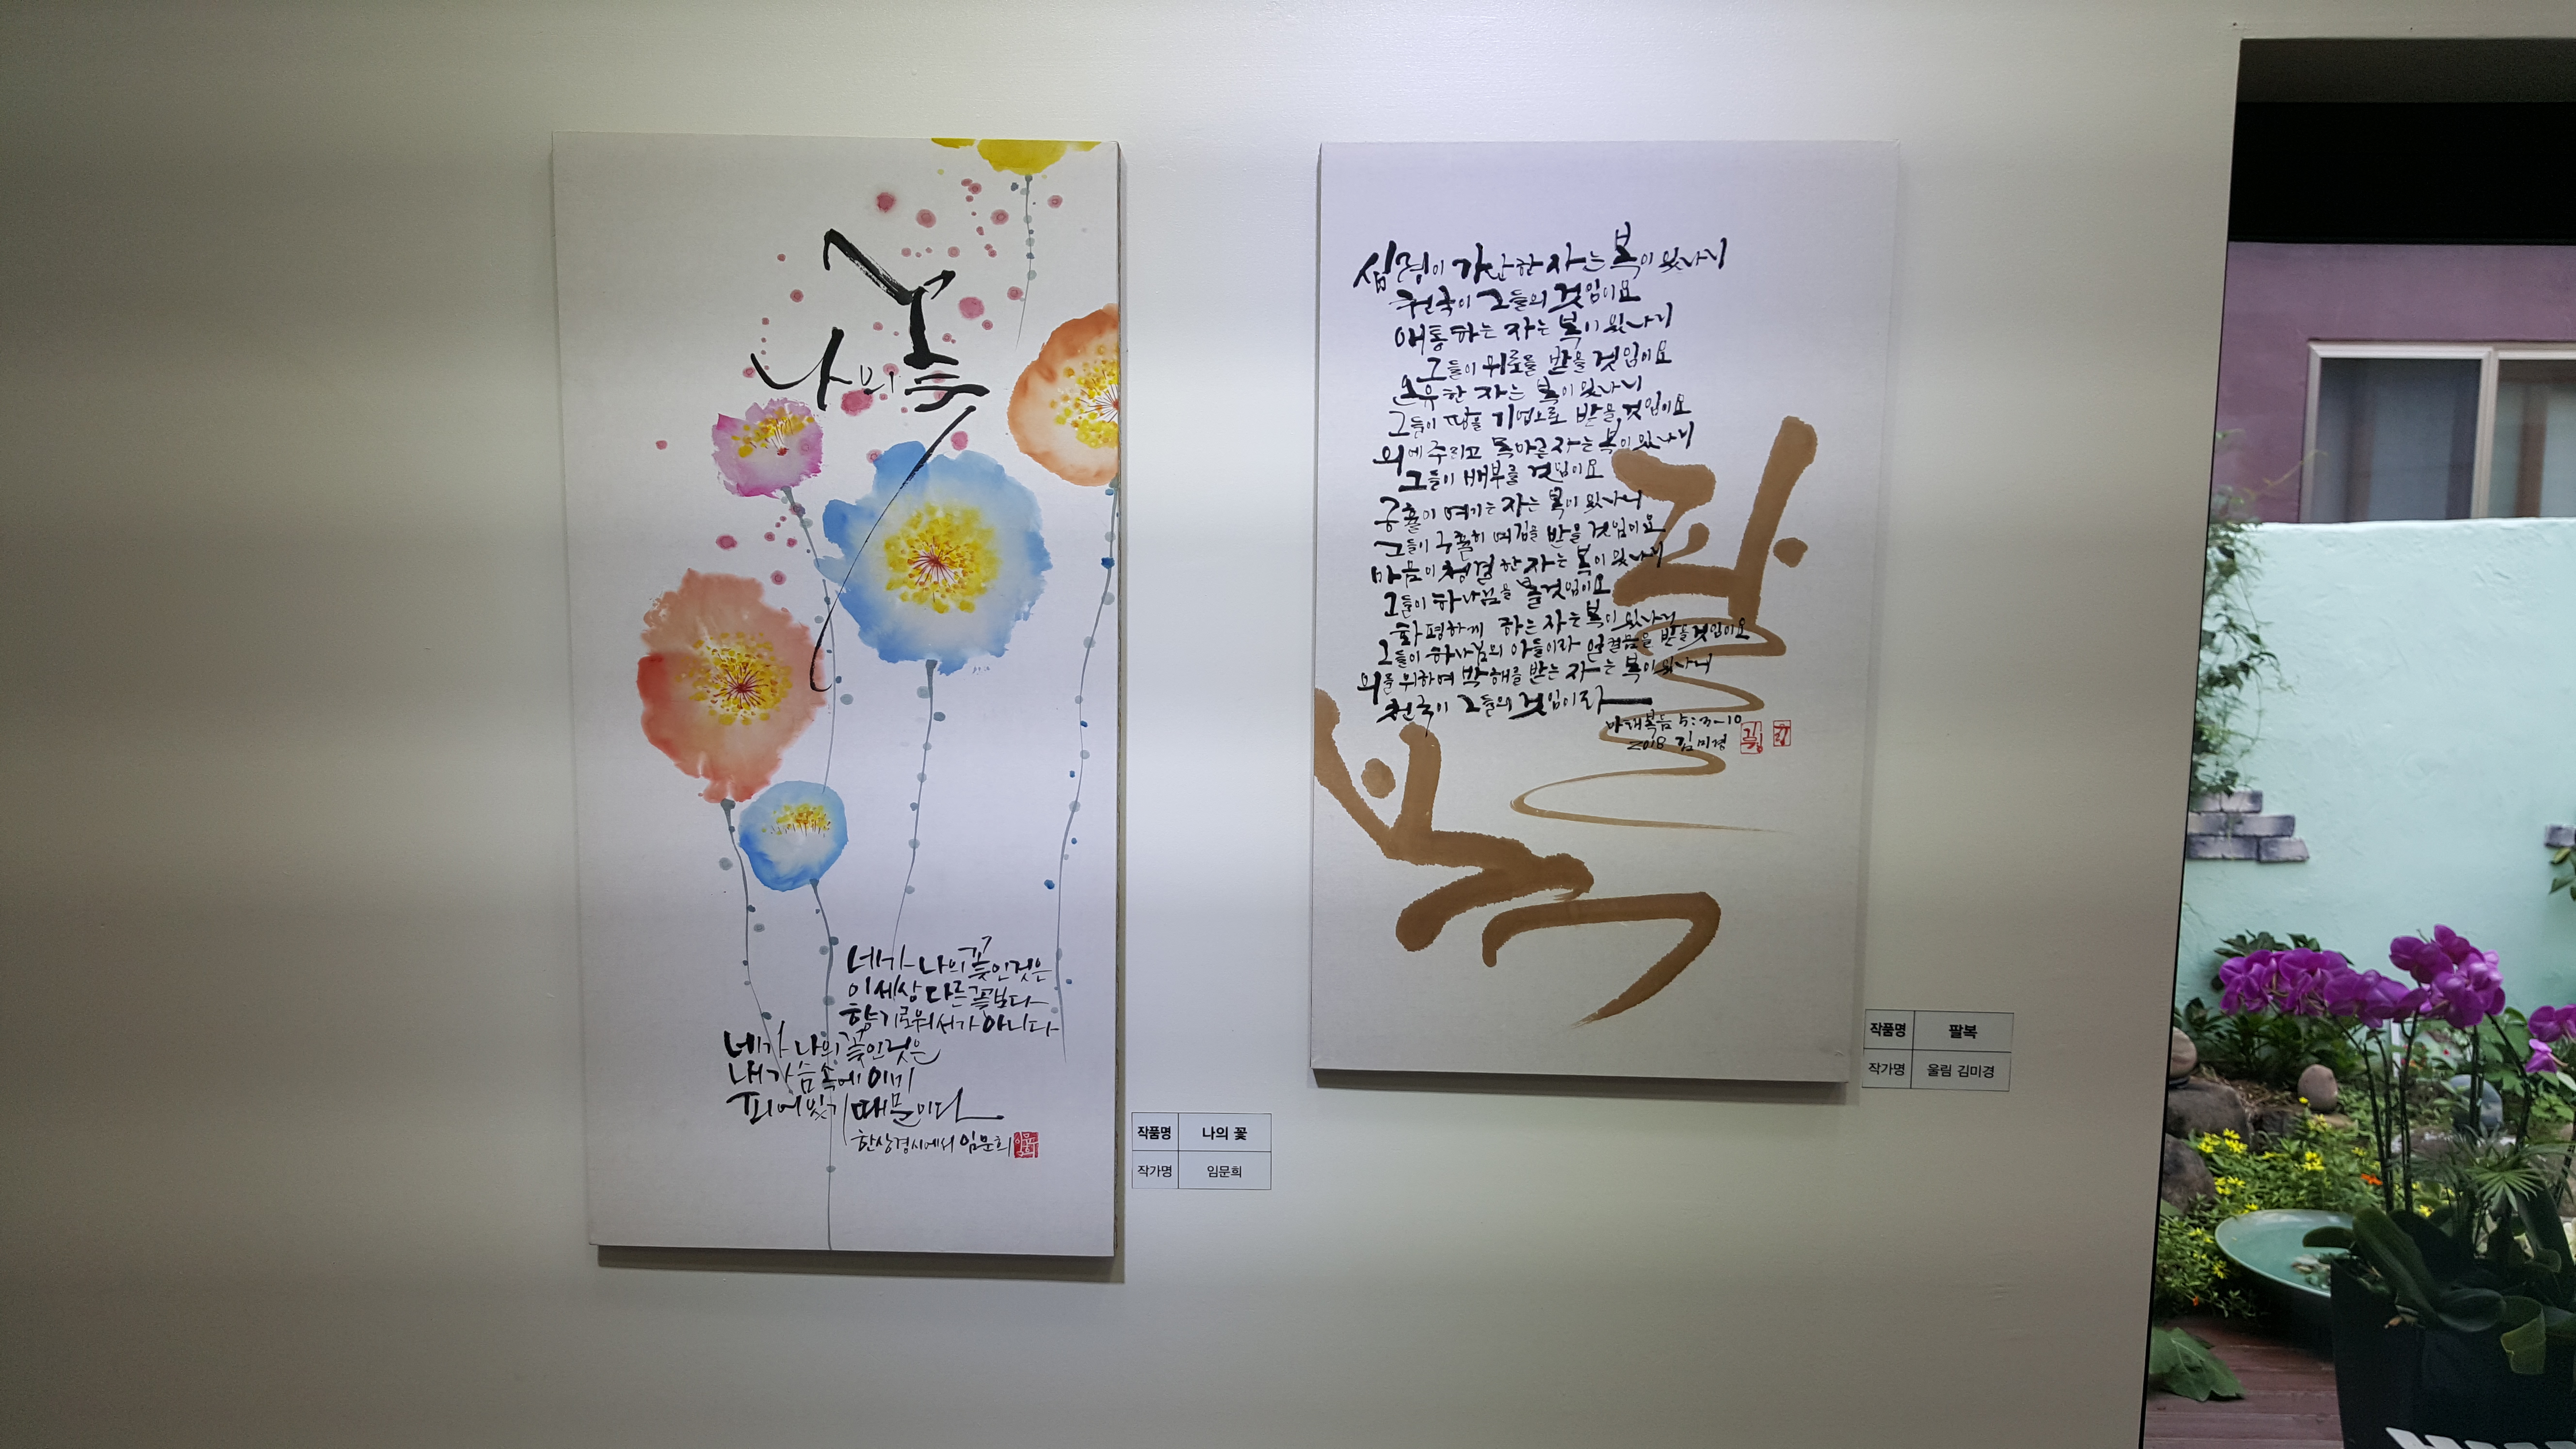 나의 꽃
네가 나의 꽃인 것은
이 세상 다른 꽃보다
향기로워서가 아니다
네가 나의 꽃인 것은
내 가슴 속에 이미
피어있기 때문이다
한상경 시에서 임문희
작품명 나의 꽃
작가명 임문희
심령이 가난한 자는 복이 있나니
천국이 그들의 것임이요
애통하는 자는 복이 있나니
그들이 위로를 받을 것임이요
온유한 자는 복이 있나니
그들이 땅을 기업으로 받을 것임이요
의에 주리고 목마른 자는 복이 있나니
그들이 배부를 것임이요
긍휼히 여기는 자는 복이 있나니
그들이 긍휼히 여김을 받을 것임이요
마음이 청결한 자는 복이 있나니
그들이 하나님을 볼 것임이요
화평하게 하는 자는 복이 있나니
그들이 하나님의 아들이라 일컬음을 받을 것임이요
의를 위하여 박해를 받는 자는 복이 있나니
천국이 그들의 것임이라
마태복음 5:3-10
2018 김미경
팔
복
작품명 팔복
작가명 울림 김미경